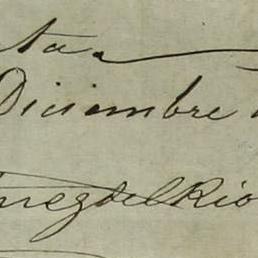 ta
Diciembre
nez del Rio